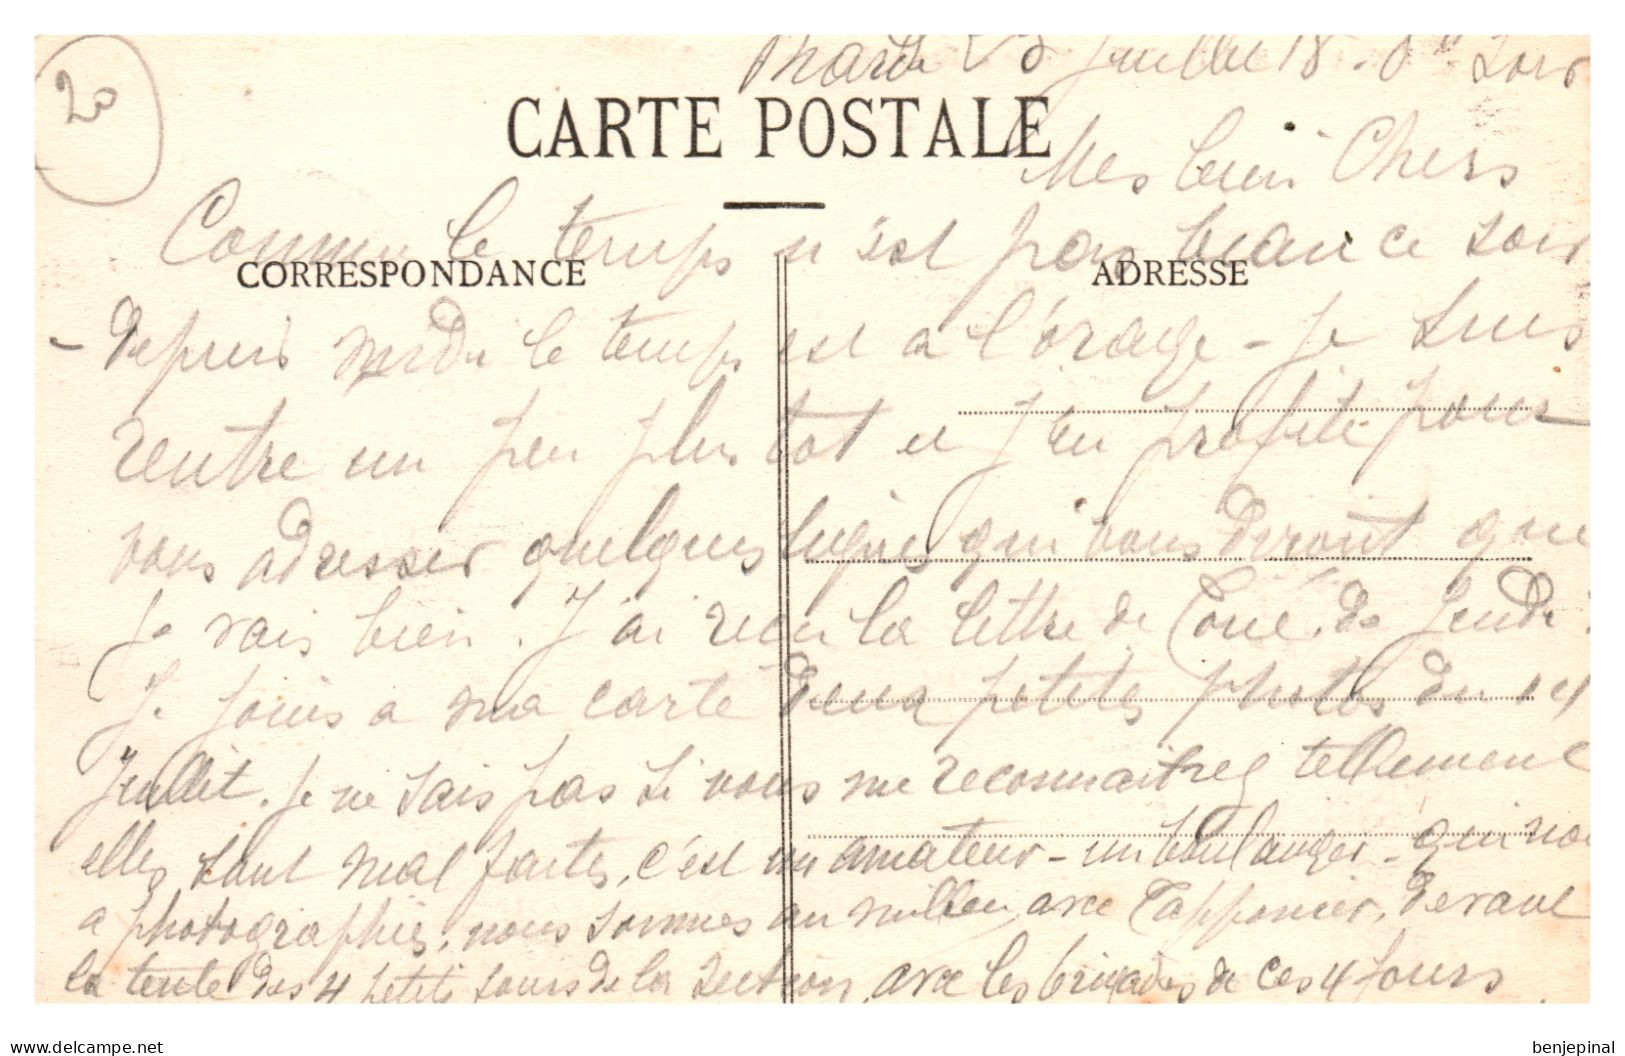 20
Mardi 23 Juillet 18. Soir
CARTE POSTALE
Mes bien Chers
Comme le temps n'est pas beau ce soir
CORRESPONDANCE
ADRESSE
- depuis midi le temps est a l'orage - je suis
rentre un peu plus tot et j'en profite pour
vous adresser quelques lignes qui vous diront que
je vais bien. J'ai reçu la lettre de de Jeudi.
Je joins a ma carte deux petites photos du 14
Juillet. je ne sais pas si vous me reconnaitrez tellement
elles sont mal faites, c'est un amateur - un boulanger - qui nou
a photographiés, nous sommes au milieu avec Tapponier, devant
la tente des 4 petits fours de la section, avec les brigades de ces 4 fours
delcampe.net
benjepinal